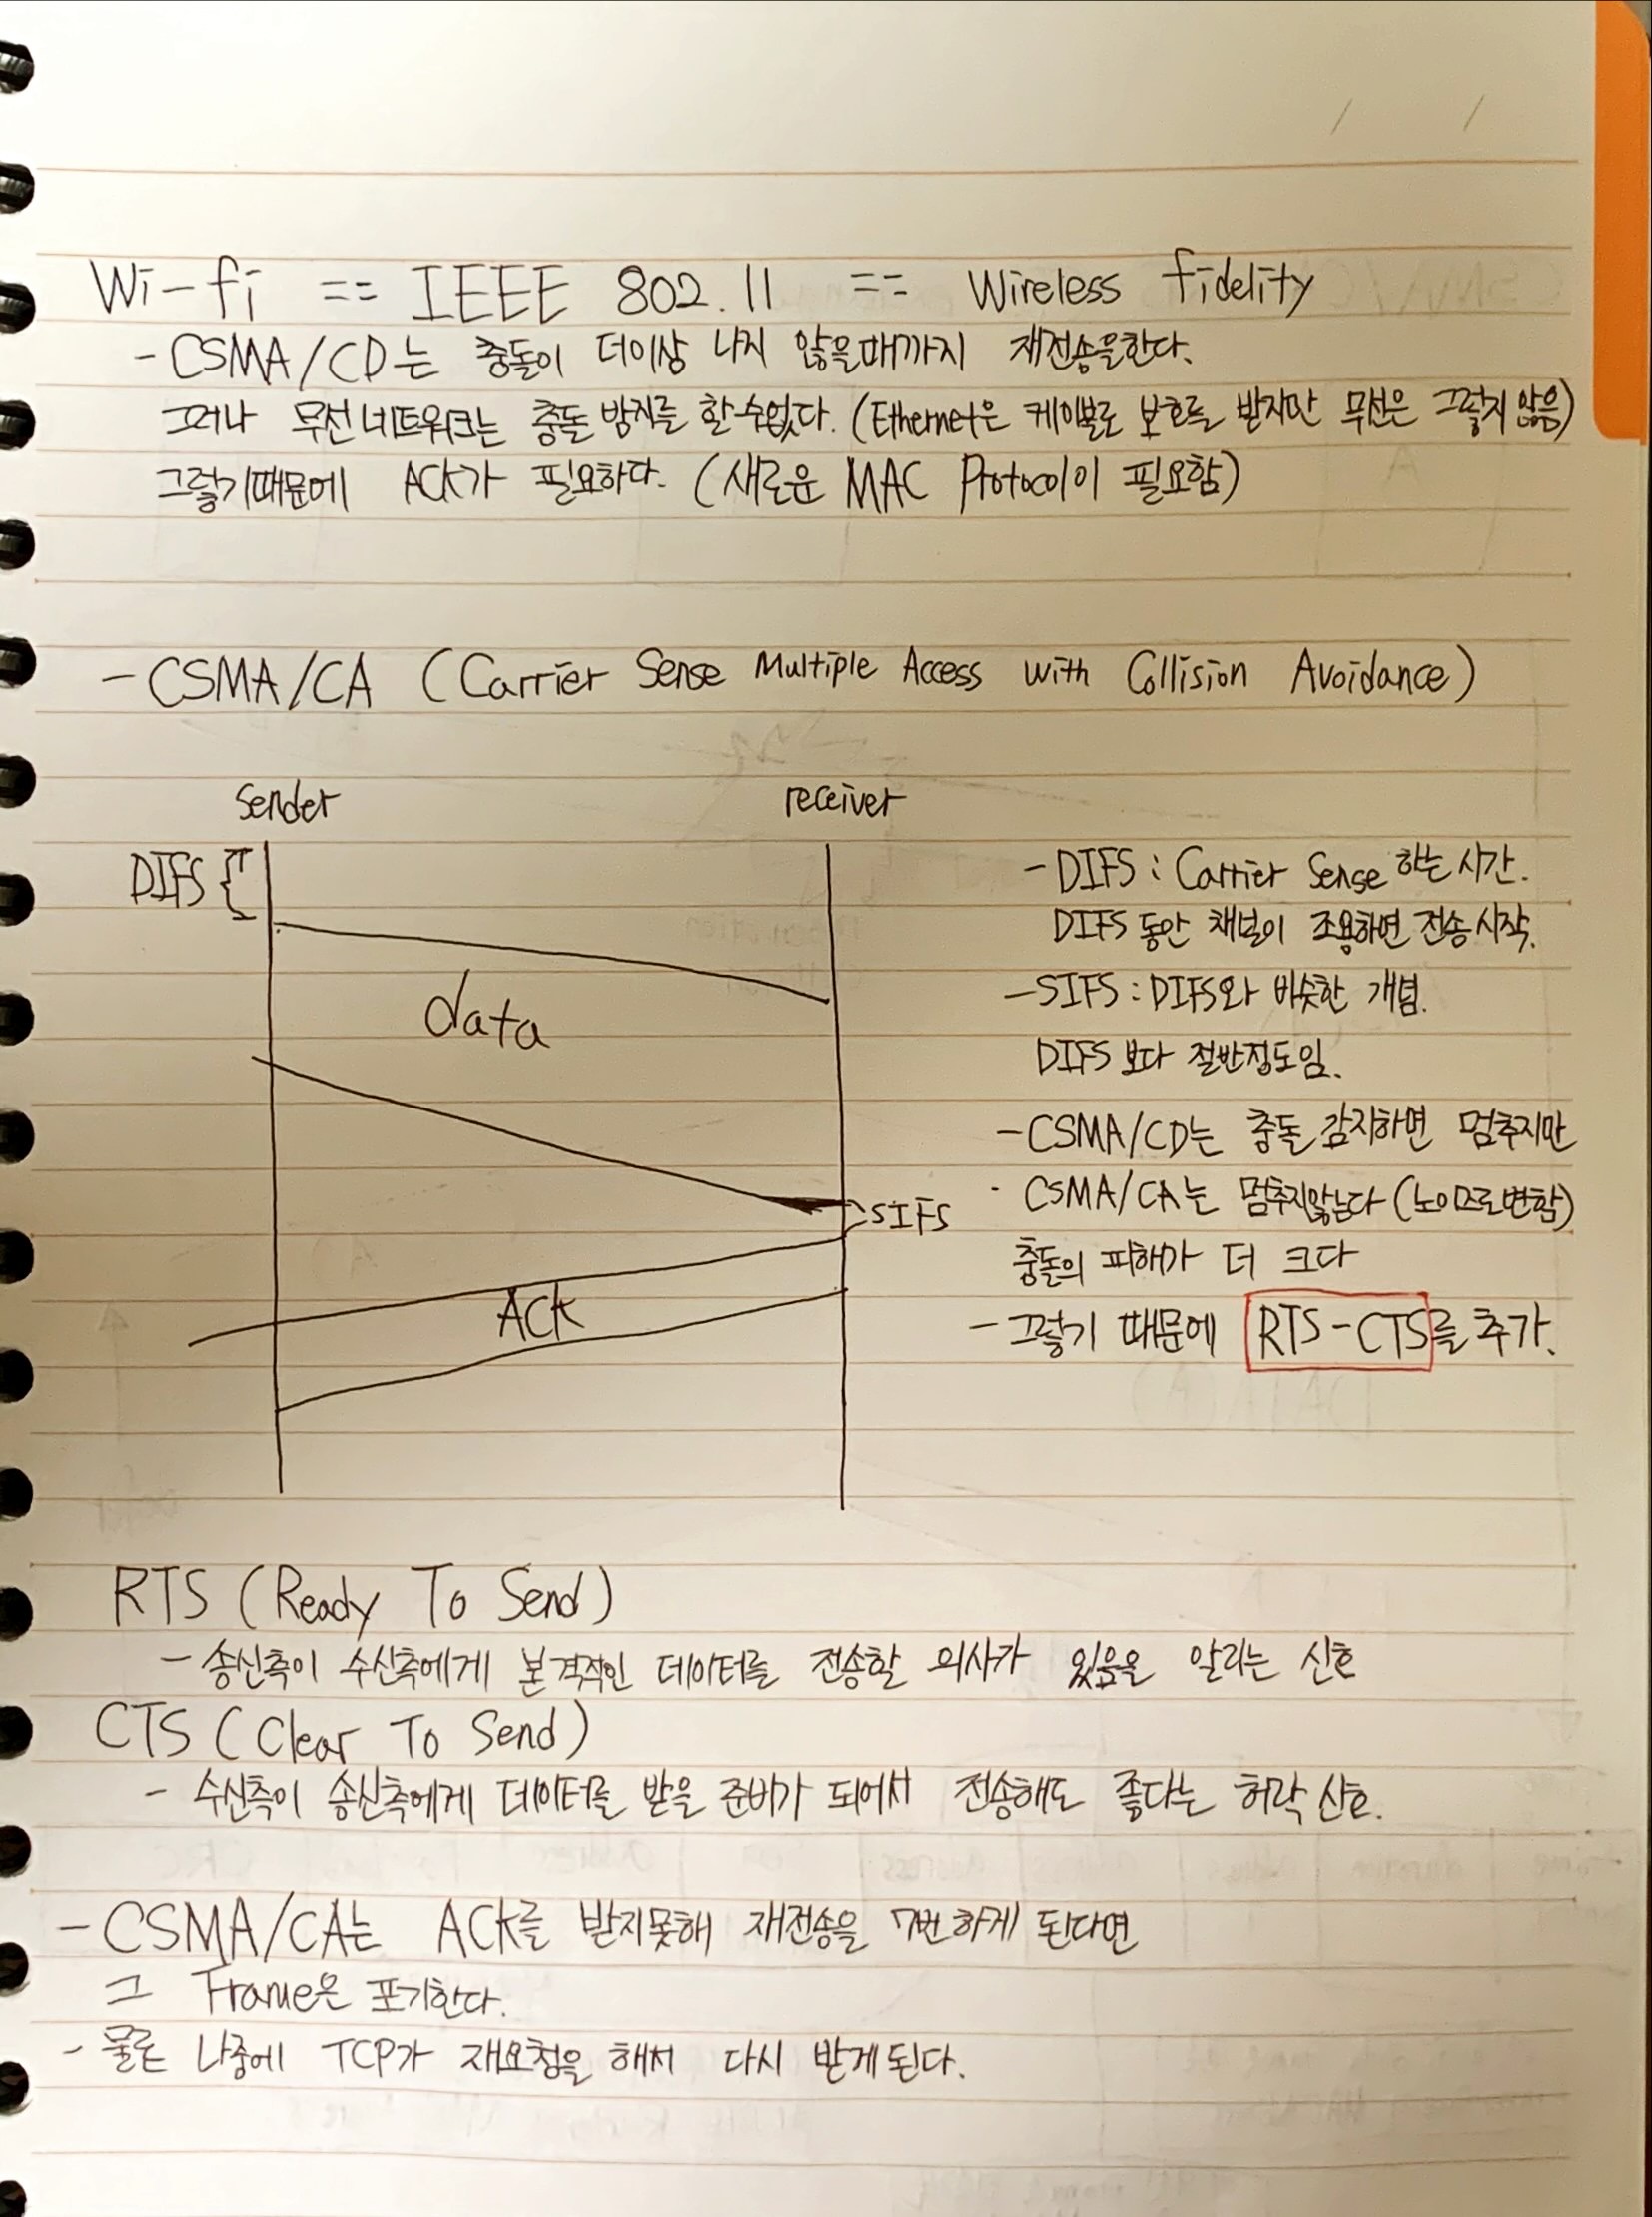 Wi-fi == IEEE 802.11 == Wireless fidelity
- CSMA/CD는 충돌이 더이상 나지 않을때까지 재전송을한다.
그러나 무선네트워크는 충돌 방지를 할수없다. (Ethernet은 케이블로 보호를 받지만 무선은 그렇지 않음)
그렇기때문에 ACK가 필요하다. (새로운 MAC Protocol이 필요함)
- CSMA/CA (Carrier Sense Multiple Access with Collision Avoidance)
sender receiver
DIFS
data
SIFS
ACK
- DIFS : Carrier Sense 하는 시간.
DIFS 동안 채널이 조용하면 전송 시작.
- SIFS : DIFS와 비슷한 개념.
DIFS 보다 절반정도임.
- CSMA/CD는 충돌 감지하면 멈추지만
· CSMA/CA는 멈추지않는다 (노이즈로변함)
충돌의 피해가 더 크다
- 그렇기 때문에 RTS-CTS를 추가.
RTS (Ready To Send)
- 송신측이 수신측에게 본격적인 데이터를 전송할 의사가 있음을 알리는 신호
CTS (Clear To Send)
- 수신측이 송신측에게 데이터를 받을 준비가 되어서 전송해도 좋다는 허락 신호.
- CSMA/CA는 ACK를 받지못해 재전송을 7번 하게 된다면
그 Frame은 포기한다.
- 물론 나중에 TCP가 재요청을 해서 다시 받게된다.